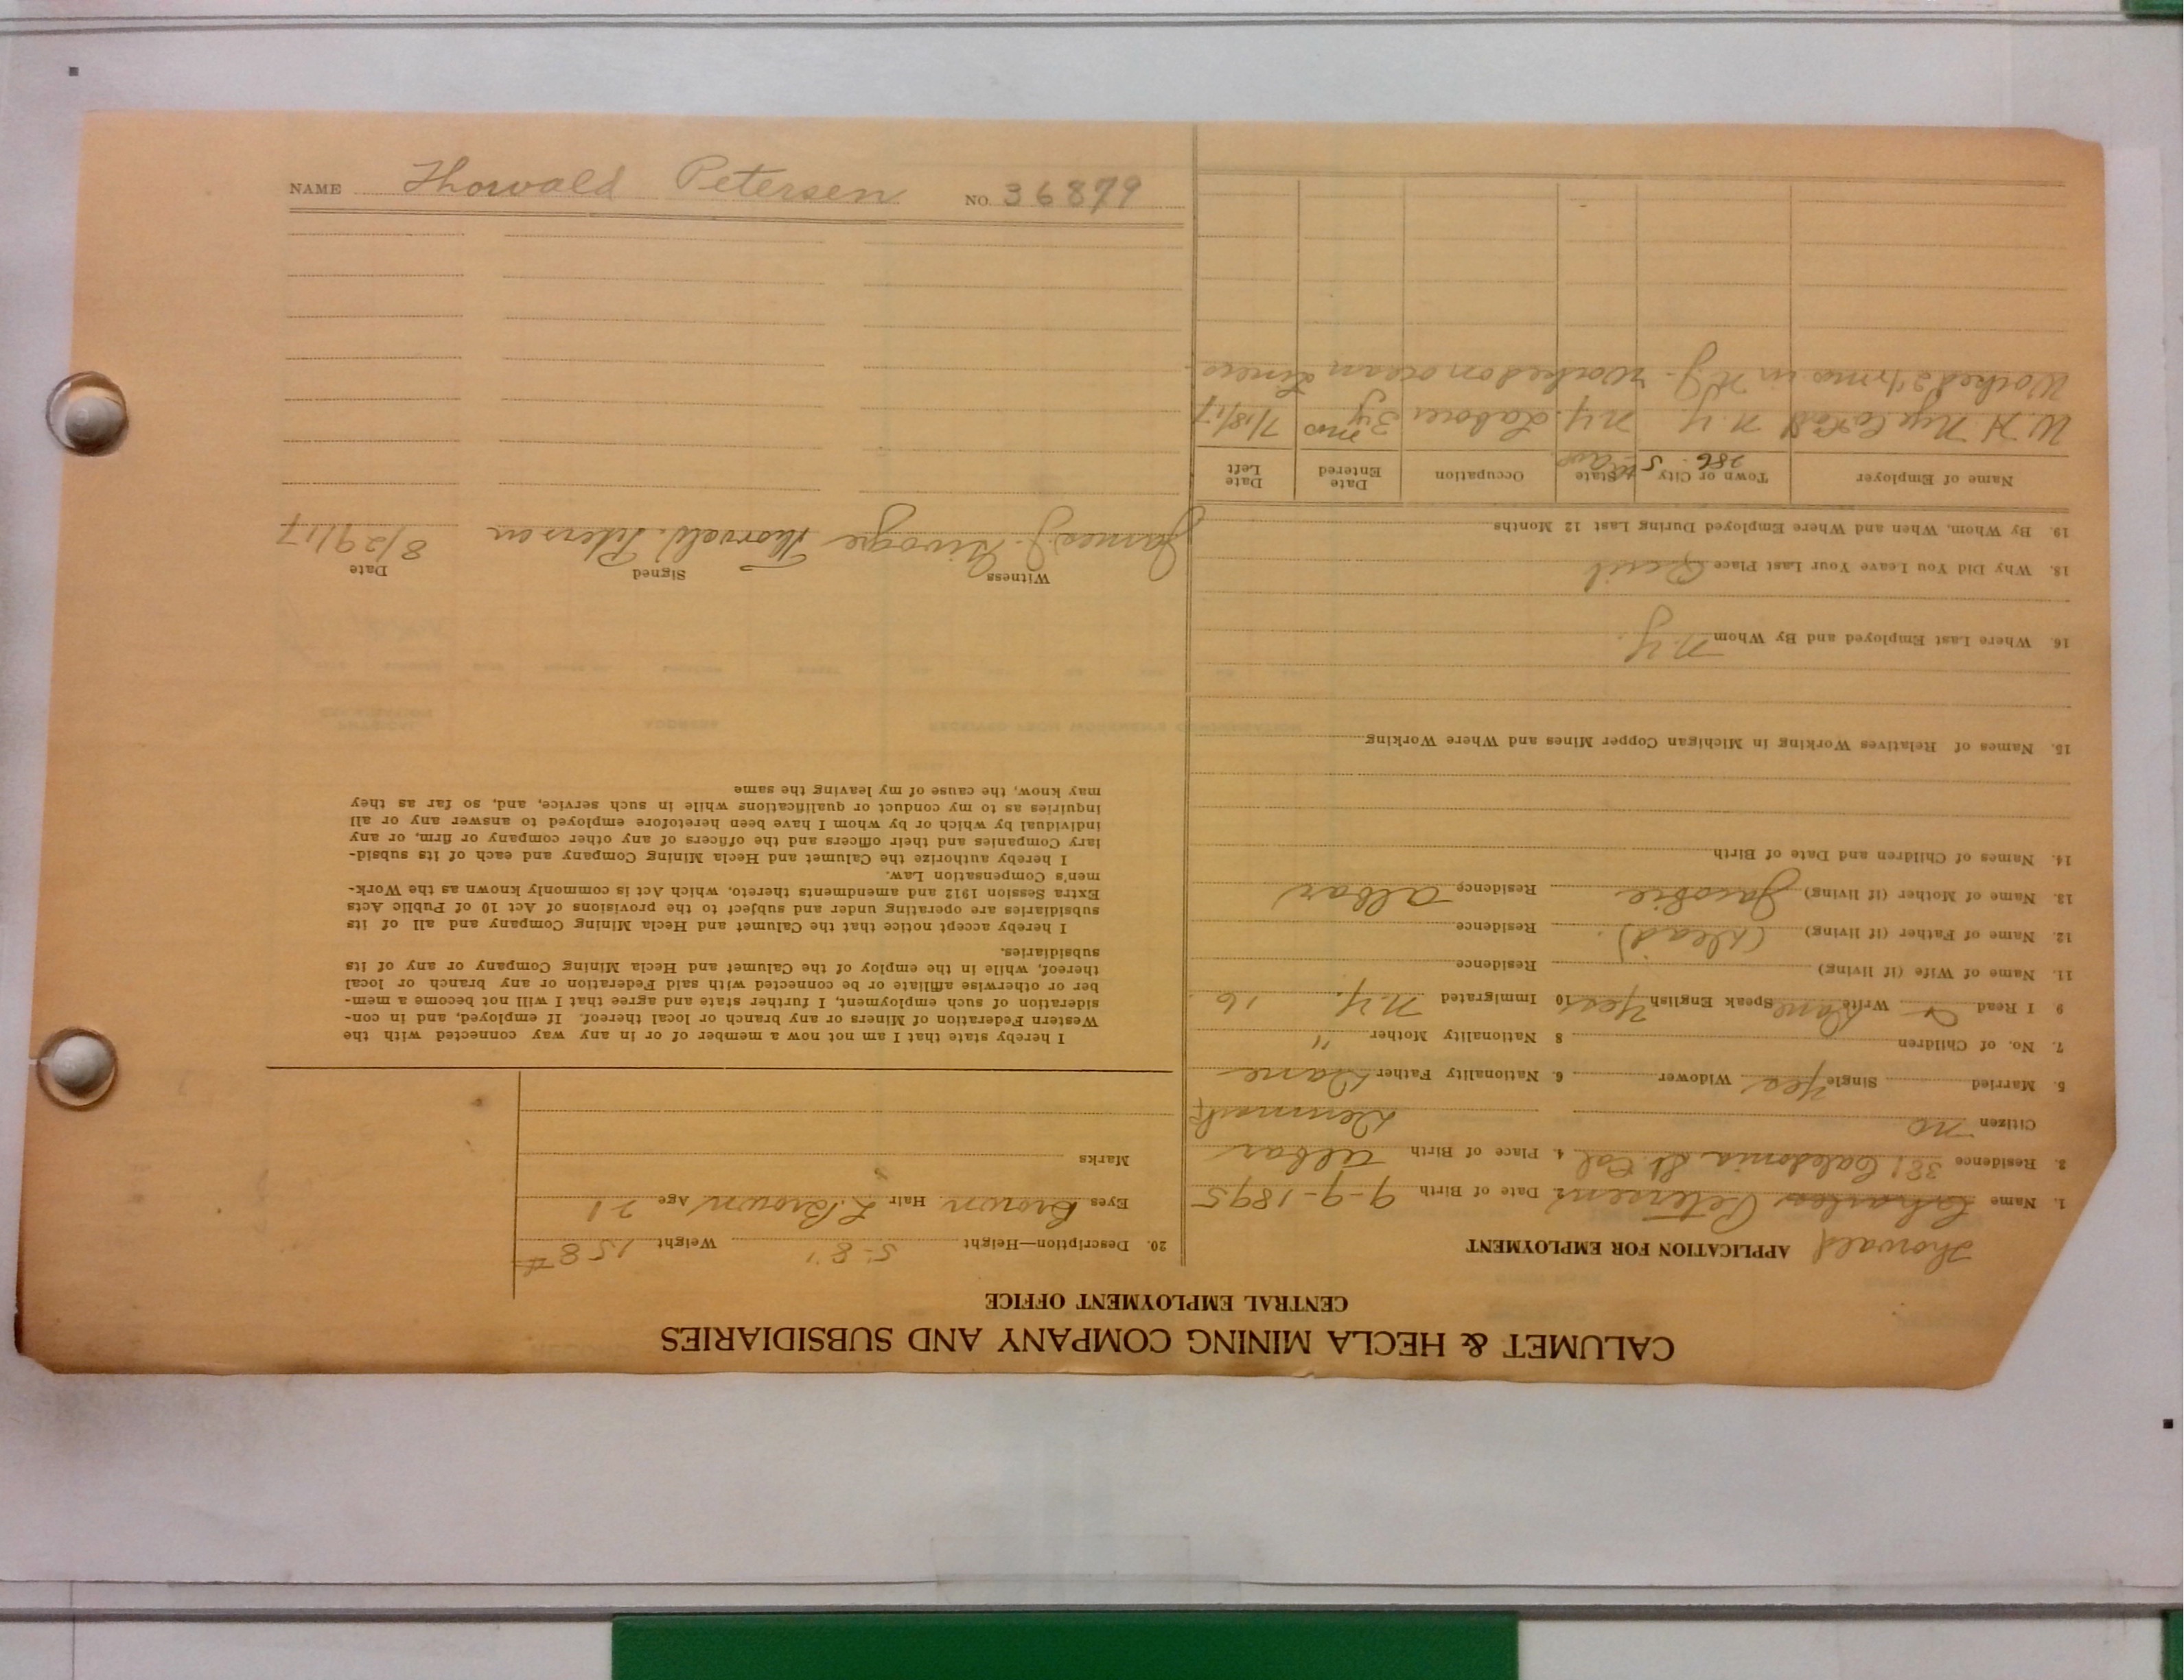 CALUMET & HECLA MINING COMPANY AND SUBSIDIARIES
CENTRAL EMPLOYMENT OFFICE
Thorvald APPLICATION FOR EMPLOYMENT
1. Name Charles Petersens Date of Birth 9-9-1895
3. Residence 381 Caledonia St Cal 4 Place of Birth Albar
Citizen no Denmark
5. Married Single Yes Widower 6. Nationality Father Dane
7. No. of Children 8 Nationality Mother "
9 I Read & Write Dane Speak English Yes 10 Immigrated N.Y. 16
11. Name of Wife (if living) Residence
12. Name of Father (if living) (Dead) Residence
13. Name of Mother (if living) Residence Albar
14. Names of Children and Date of Birth
15. Names of Relatives Working in Michigan Copper Mines and Where Working
16. Where Last Employed and By Whom N.Y.
18. Why Did You Leave Your Last Place
19. By Whom, When and Where Employed During Last 12 Months
Name of Employer Town or City State Occupation Date Entered Date Left
286 5
W. H. N.Y. N.Y. Labour 3 mos 7/18/17
Worked in N.Y. Worked on ocean Liners
20. Description—Height 5-8" Weight 158#
Eyes Brown Hair L. Brown Age 21
Marks
I hereby state that I am not now a member of or in any way connected with the
Western Federation of Miners or any branch or local thereof. If employed, and in con-
sideration of such employment, I further state and agree that I will not become a mem-
ber or otherwise affiliate or be connected with said Federation or any branch or local
thereof, while in the employ of the Calumet and Hecla Mining Company or any of its
subsidiaries.
I hereby accept notice that the Calumet and Hecla Mining Company and all of its
subsidiaries are operating under and subject to the provisions of Act 10 of Public Acts
Extra Session 1912 and amendments thereto, which Act is commonly known as the Work-
men's Compensation Law.
I hereby authorize the Calumet and Hecla Mining Company and each of its subsid-
iary Companies and their officers and the officers of any other company or firm, or any
individual by which or by whom I have been heretofore employed to answer any or all
inquiries as to my conduct or qualifications while in such service, and, so far as they
may know, the cause of my leaving the same
Witness Signed Date
James J. Thorvald. Petersen 8/29/17
NAME Thorvald Petersen NO. 36879